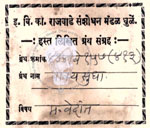 इ. वि. का. राजवाडे संशोधन मंडळ धुळें.
हस्त लिखित ग्रंथ संग्रह
ग्रंथ क्रमांक १५७ (४९३)
ग्रंथ नाम सुधा
विषय म. वेदांत